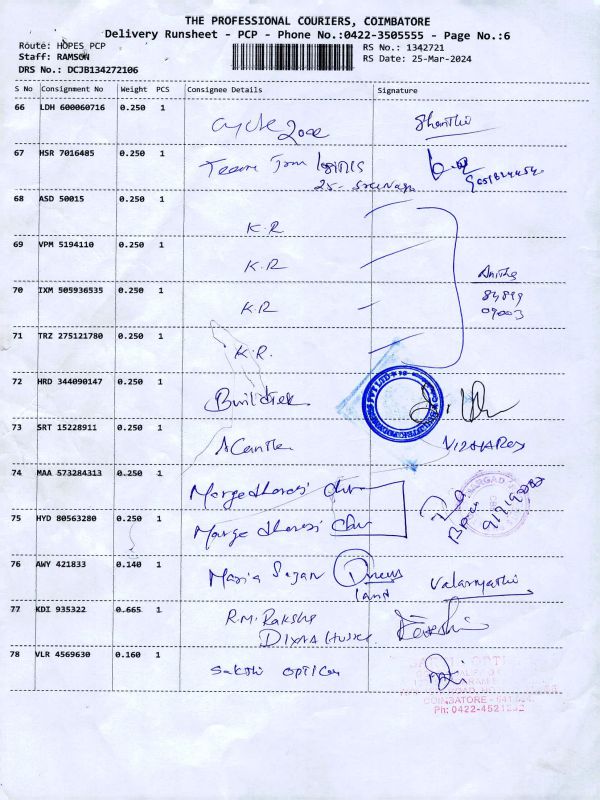 THE PROFESSIONAL COURIERS, COIMBATORE
Delivery Runsheet - PCP - Phone No.:0422-3505555 - Page No.:6
Route: HOPES PCP
Staff: RAMSON
DRS No.: DCJB134272106
RS No.: 1342721
RS Date: 25-Mar-2024
S No Consignment No Weight PCS Consignee Details Signature
66 LDH 600060716 0.250 1 Cycle Zone Shanthi
67 HSR 7016485 0.250 1 Team
25-
68 ASD 50015 0.250 1 K.R
69 VPM 5194110 0.250 1 K.R
70 IXM 505936535 0.250 1 K.R Anitha
84899
09003
71 TRZ 275121780 0.250 1 K.R.
72 HRD 344090147 0.250 1 Buildtek
73 SRT 15228911 0.250 1
74 MAA 573284313 0.250 1 Margadharasi Chr
75 HYD 80563280 0.250 1 Margadharasi Chr
76 AWY 421833 0.140 1 Maria Sujan
land Valarmathi
77 KDI 935322 0.665 1 R.M. Raksha
78 VLR 4569630 0.160 1 Sakthi Optical
COIMBATORE
Ph: 0422-